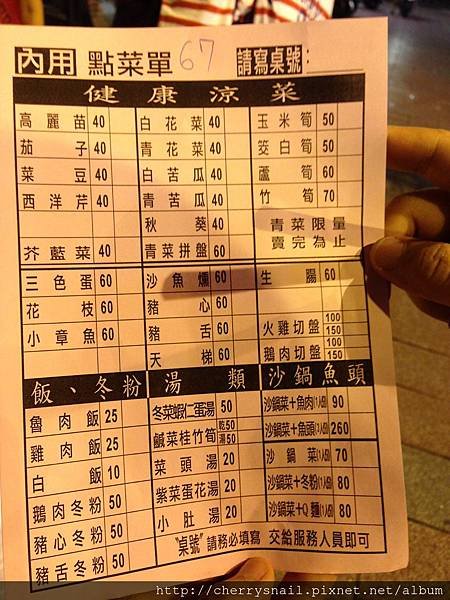 內用 點菜單 67 請寫桌號：
健康涼菜
高麗苗 40 白花菜 40 玉米筍 50
茄子 40 青花菜 40 筊白筍 50
菜豆 40 白苦瓜 40 蘆筍 60
西洋芹 40 青苦瓜 40 竹筍 70
秋葵 40 青菜限量
芥藍菜 40 青菜拼盤 60 賣完為止
三色蛋 60 沙魚燻 60 生腸 60
花枝 60 豬心 60
小章魚 60 豬舌 60 火雞切盤 100 150
天梯 60 鵝肉切盤 100 150
飯、冬粉 湯類 沙鍋魚頭
魯肉飯 25 冬菜蝦仁蛋湯 50 沙鍋菜+魚肉(1人份) 90
雞肉飯 25 鹹菜桂竹筍 乾50 湯50 沙鍋菜+魚頭(3人份) 260
白飯 10 菜頭湯 20 沙鍋菜(1人份) 70
鵝肉冬粉 50 紫菜蛋花湯 20 沙鍋菜+冬粉(1人份) 80
豬心冬粉 50 小肚湯 20 沙鍋菜+Q麵(1人份) 80
豬舌冬粉 50 "桌號"請務必填寫 交給服務人員即可
http://cherrysnail.pixnet.net/album